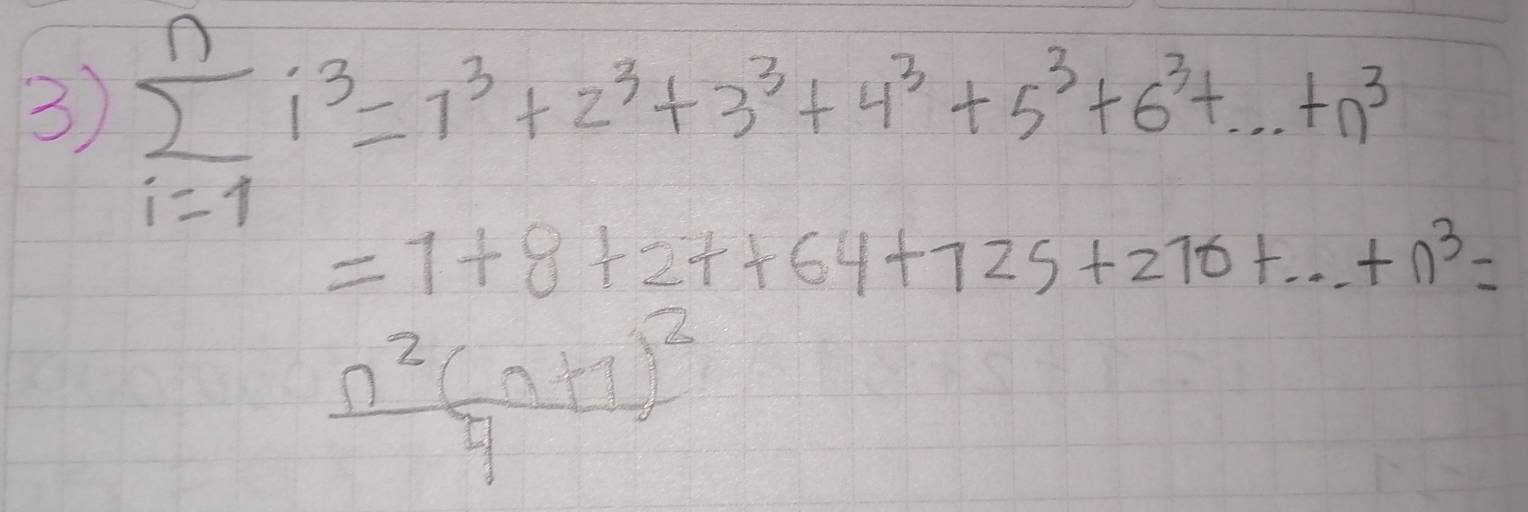 3) \sum_{i=1}^{n} i^3 = 1^3 + 2^3 + 3^3 + 4^3 + 5^3 + 6^3 + ... + n^3
= 1 + 8 + 27 + 64 + 125 + 216 + ... + n^3 =
\frac{n^2(n+1)^2}{4}